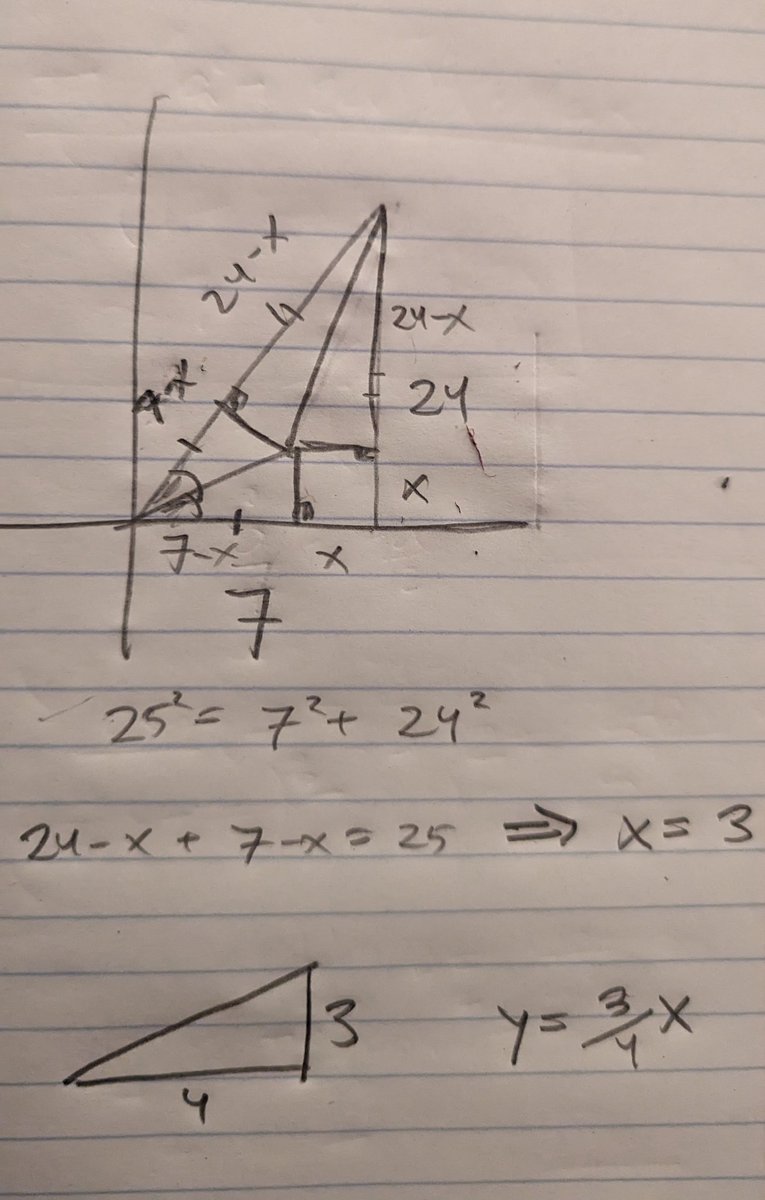 24-x
24-x
24
x
7-x
x
7
25² = 7² + 24²
24-x + 7-x = 25 ⇒ x = 3
3
4
y = 3/4 x